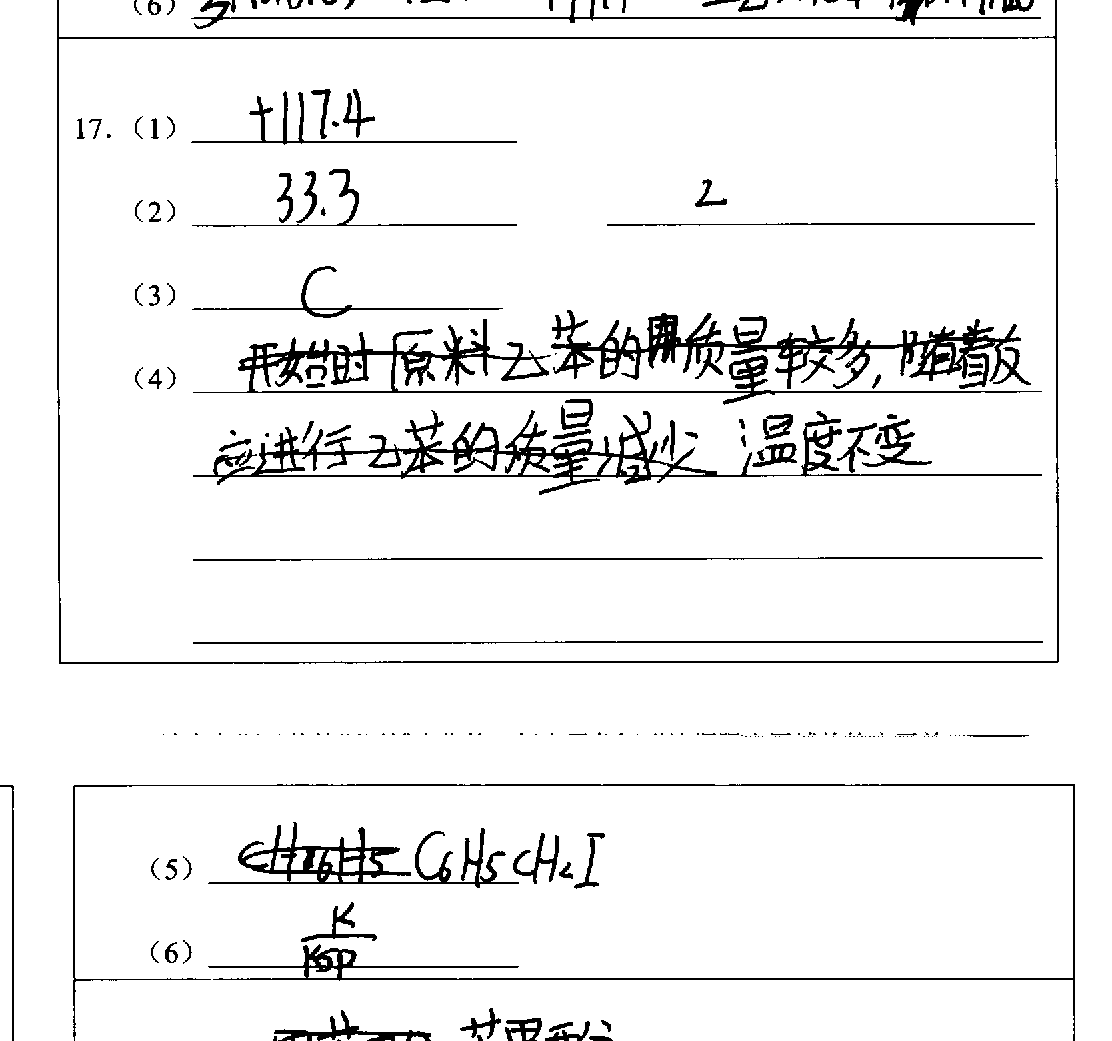 (6)
17. (1) +117.4
(2) 33.3 2
(3) C
(4) 开始时原料乙苯的质量较多,随着反
应进行乙苯的质量减少 温度不变
(5) C6H5CH2I
(6) K/Ksp